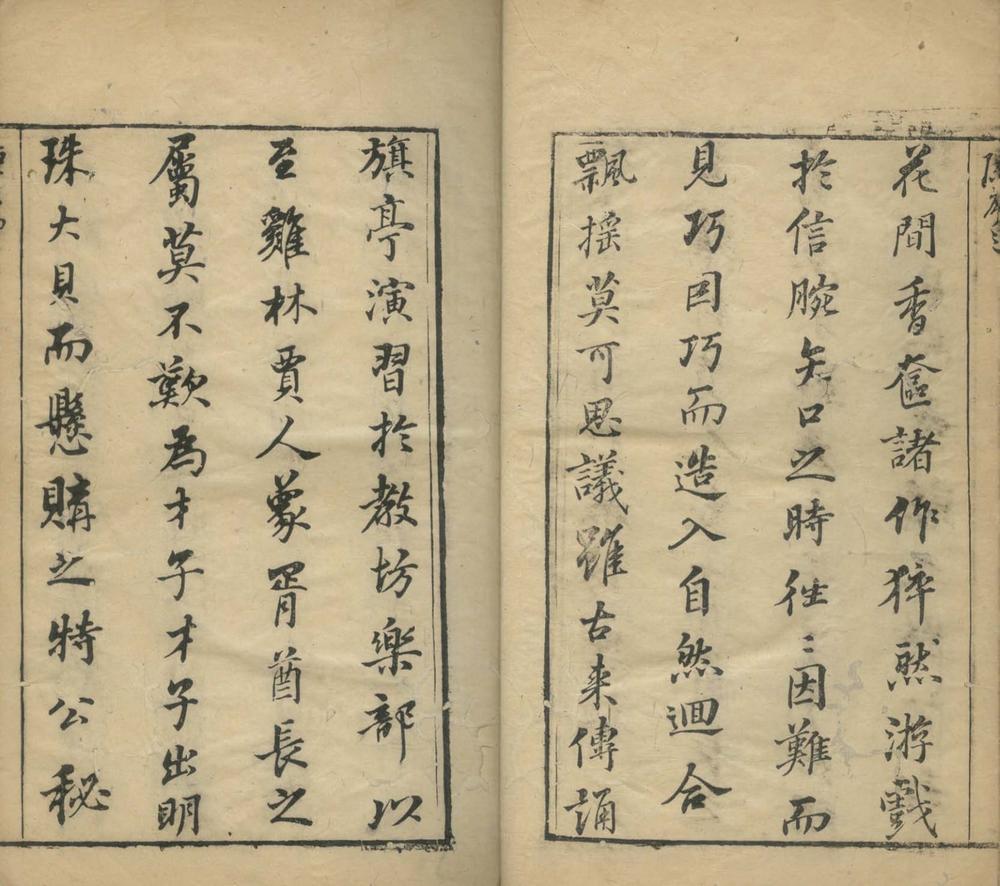 花間香奩諸作猝然游戲
於信腕矢口之時往〻因難而
見巧因巧而造入自然迴合
飄搖莫可思議雖古来傳誦
旗亭演習於教坊樂部以
至雞林賈人蒙胥酋長之
屬莫不歎為才子才子出明
珠大貝而懸購之特公秘